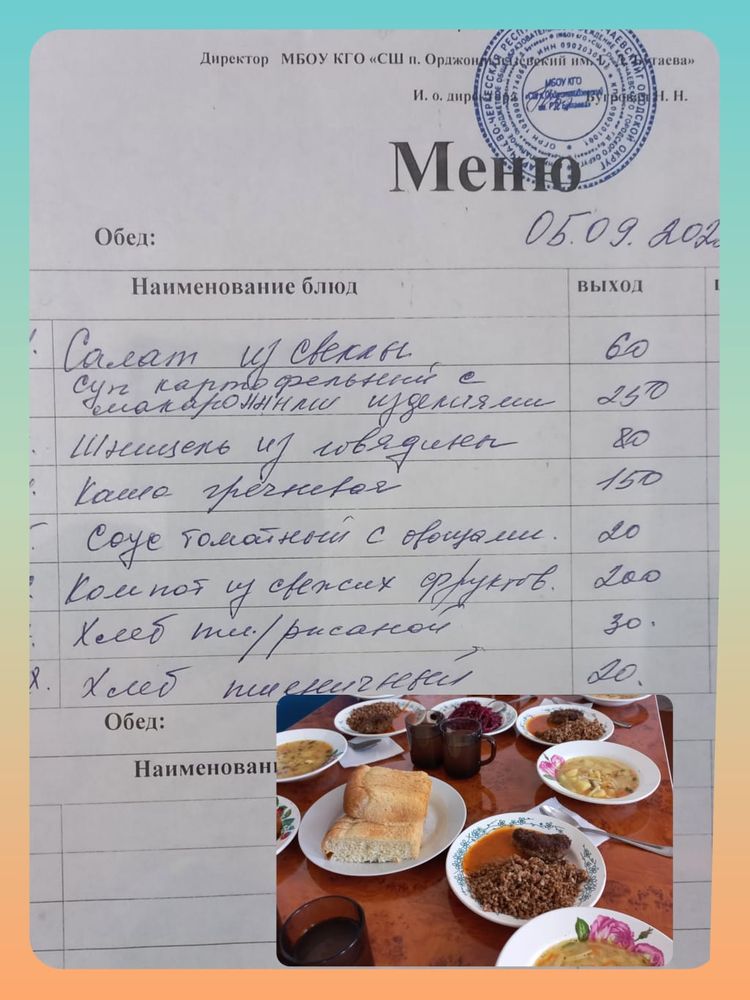 Директор МБОУ КГО «СШ п. Орджоникидзевский им.
И. о. директора Бугровая Н. Н.
МБОУ КГО
Меню
Обед: 05.09.202
Наименование блюд выход
Салат из свеклы 60
Суп картофельный с
макаронными изделиями 250
Шницель из говядины 80
Каша гречневая 150
Соус томатный с овощами. 20
Компот из свежих фруктов. 200
Хлеб пш/ржаной 30.
8. Хлеб пшеничный 20.
Обед:
Наименовани